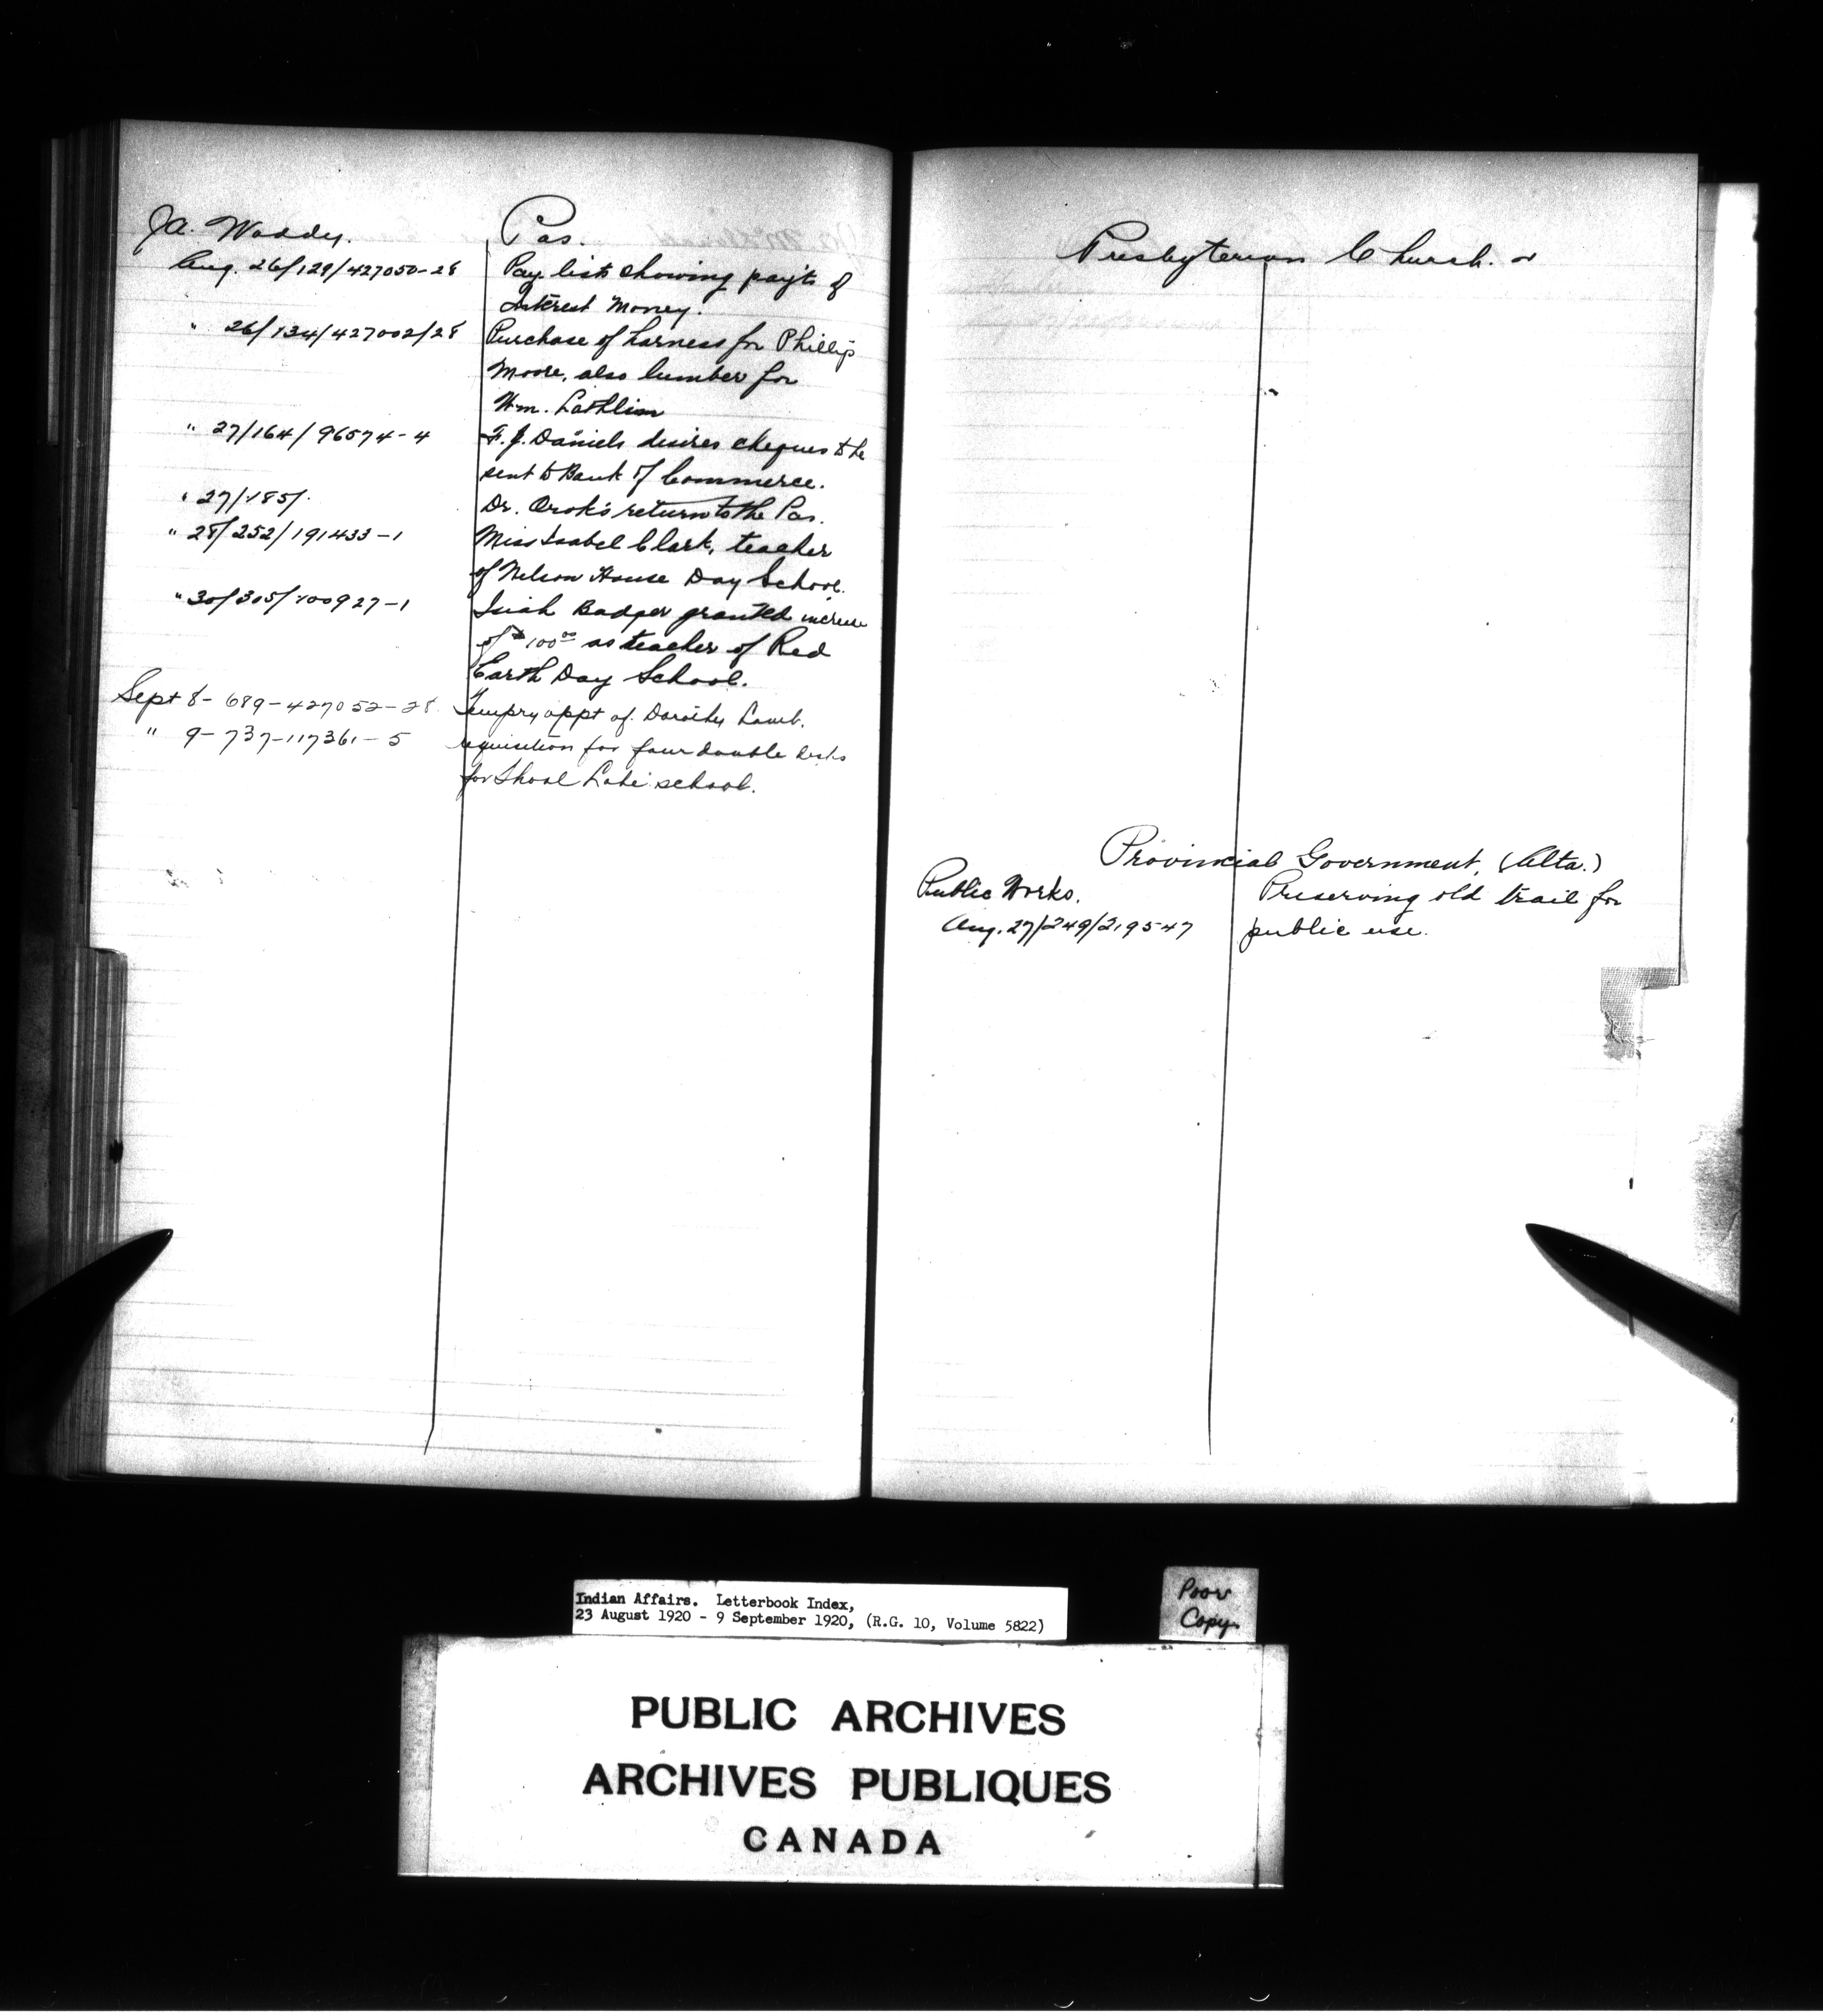 J.A. Waddy. Pas.
Aug. 26/129/427050-28 Pay lists showing pay'ts of
Interest Money.
" 26/134/427002/28 Purchase of harness for Phillip
Moore, also lumber for
Wm. Lathlin
" 27/164/96574-4 F. J. Daniels desires cheques to be
sent to Bank of Commerce.
" 27/185/. Dr. Orok's return to the Pas.
" 28/252/191433-1 Miss Isabel Clark, teacher
of Nelson House Day School.
" 30/305/100927-1 Isiah Badger granted increase
of $100.00 as teacher of Red
Earth Day School.
Sept 8-689-427052-28 Tempry appt of Dorothy Lamb.
" 9-737-117361-5 requisition for four double desks
for Shoal Lake school.
Presbyterian Church.
Provincial Government, (Alta.)
Public Works. Preserving old trail for
Aug. 27/249/219547 public use.
Indian Affairs. Letterbook Index,
23 August 1920 - 9 September 1920, (R.G. 10, Volume 5822)
Poor
Copy
PUBLIC ARCHIVES
ARCHIVES PUBLIQUES
CANADA